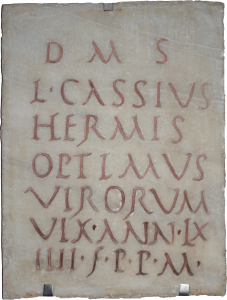 D M S
L·CASSIVS
HERMIS
OPTIMVS
VIRORVM
VIX·ANN·LX
IIII·F·P·P·M·